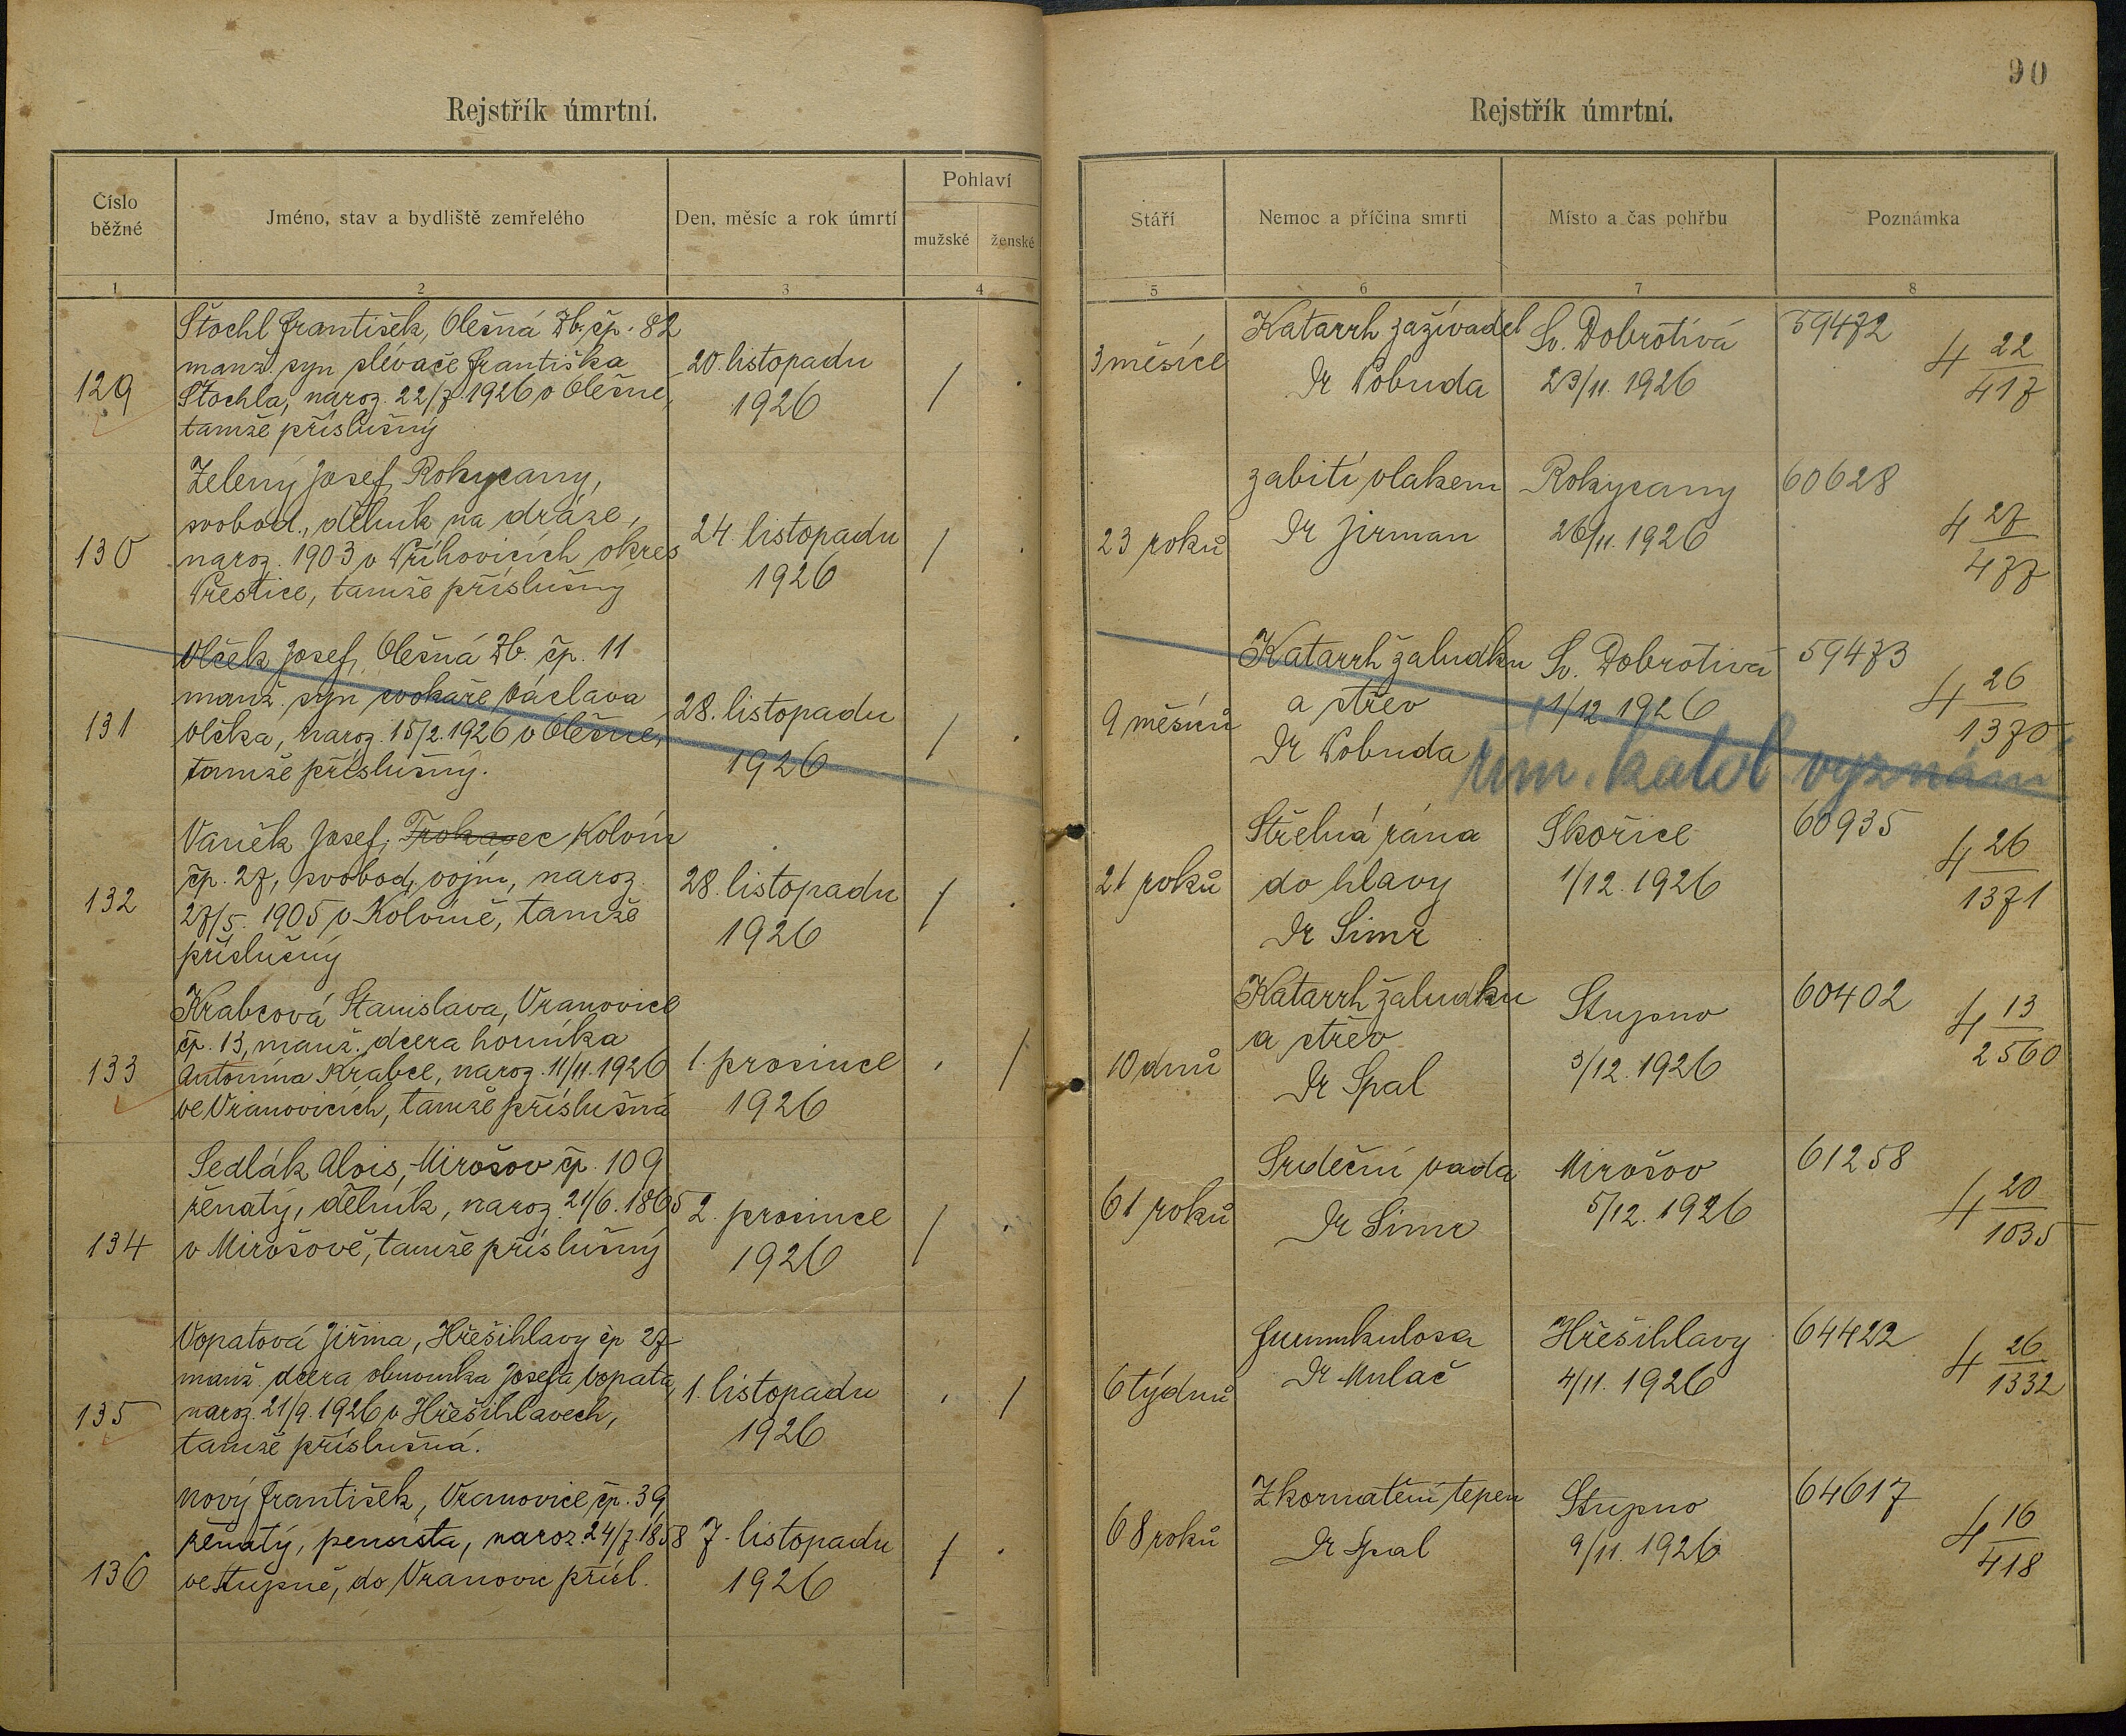 90
Rejstřík úmrtní.
Rejstřík úmrtní.
Číslo běžné
Jméno, stav a bydliště zemřelého
Den, měsíc a rok úmrtí
Pohlaví
mužské
ženské
Stáří
Nemoc a příčina smrti
Místo a čas pohřbu
Poznámka
1 2 3 4 5 6 7 8
129
Štochl František, Olešná Zb. čp. 82
manž. syn slévače Františka
Štochla, naroz. 22/7. 1926 v Olešné,
tamže příslušný
20. listopadu
1926
/ .
3 měsíce
Katarrh zažívadel
Dr Vobuda
Sv. Dobrotivá
23/11. 1926
59472
4 22/417
130
Zelený Josef, Rokycany,
svobod., dělník na dráze,
naroz. 1903 v Příhovicích okres
Přestice, tamže příslušný
24. listopadu
1926
/ .
23 roků
zabití vlakem
Dr Jirman
Rokycany
26/11. 1926
60628
4 27/477
131
Vlček Josef, Olešná Zb. čp. 11
manž. syn cvokaře Václava
Vlčka, naroz. 15/2. 1926 v Olešné,
tamže příslušný.
28. listopadu
1926
/ .
9 měsíců
Katarrh žaludku
a střev
Dr Vobuda
Sv. Dobrotivá
1/12 1926
59473
4 26/1370
řím. katol. vyznání
132
Vaněk Josef, Trokavec Kolvín
čp. 27, svobod, vojín, naroz.
27/5. 1905 v Kolvíně, tamže
příslušný
28. listopadu
1926
/ .
21 roků
Střelná rána
do hlavy
Dr Simr
Skořice
1/12. 1926
60935
4 26/1371
133
Krabcová Stanislava, Vranovice
čp. 13, manž. dcera horníka
Antonína Krabce, naroz. 11/11. 1926
ve Vranovicích, tamže příslušná
1. prosince
1926
. /
10 dnů
Katarrh žaludku
a střev
Dr Spal
Stupno
3/12. 1926
60402
4 13/2560
134
Sedlák Alois, Mirošov čp. 109
ženatý, dělník, naroz. 21/6. 1865
v Mirošově, tamže příslušný
2. prosince
1926
/ .
61 roků
Srdeční vada
Dr Simr
Mirošov
5/12. 1926
61258
4 20/1035
135
Vopatová Jiřina, Hřešihlavy čp 27
manž. dcera obuvníka Josefa Vopata,
naroz. 21/9. 1926 v Hřešihlavech,
tamže příslušná.
1. listopadu
1926
. /
6 týdnů
furunkulosa
Dr Mulač
Hřešihlavy
4/11. 1926
64422
4 26/1332
136
Nový František, Vranovice čp. 39
ženatý, pensista, naroz. 24/7. 1858
ve Stupně, do Vranovic přísl.
7. listopadu
1926
/ .
68 roků
Zkornatění tepen
Dr Spal
Stupno
9/11. 1926
64617
4 16/418